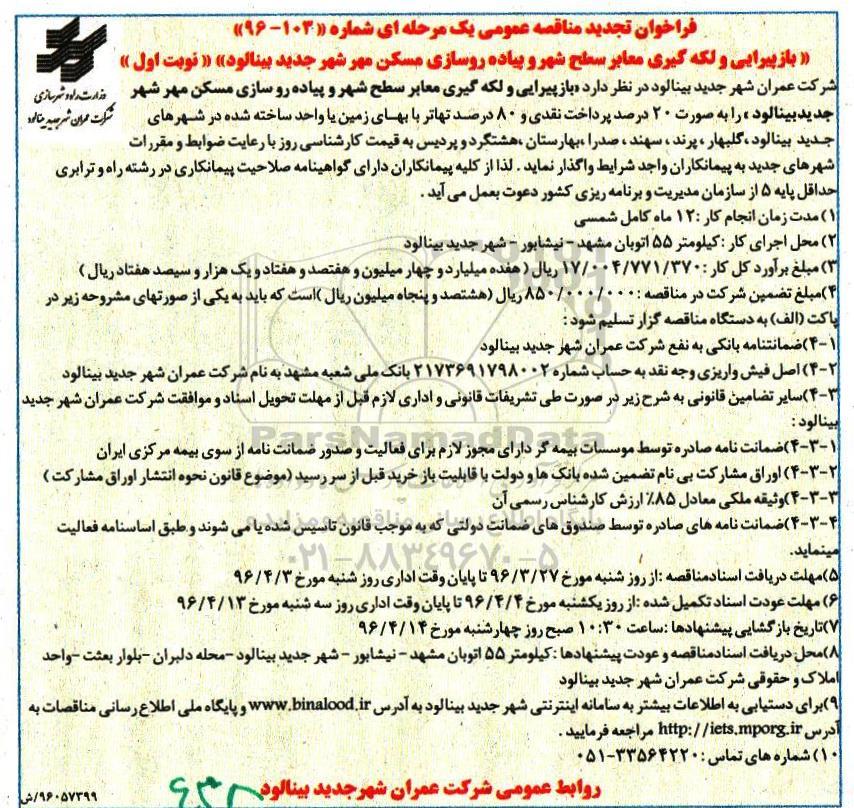 فراخوان تجدید مناقصه عمومی یک مرحله ای شماره « ۱۰۳-۹۶»
« بازپیرایی و لکه گیری معابر سطح شهر و پیاده روسازی مسکن مهر شهر جدید بینالود» « نوبت اول »
وزارت راه و شهرسازی
شرکت عمران شهر جدید بینالود
شرکت عمران شهر جدید بینالود در نظر دارد «بازپیرایی و لکه گیری معابر سطح شهر و پیاده رو سازی مسکن مهر شهر
جدیدبینالود » را به صورت ۲۰ درصد پرداخت نقدی و ۸۰ درصد تهاتر با بهای زمین یا واحد ساخته شده در شهرهای
جدید بینالود ،گلبهار ، پرند ، سهند ، صدرا ،بهارستان ،هشتگرد و پردیس به قیمت کارشناسی روز با رعایت ضوابط و مقررات
شهرهای جدید به پیمانکاران واجد شرایط واگذار نماید . لذا از کلیه پیمانکاران دارای گواهینامه صلاحیت پیمانکاری در رشته راه و ترابری
حداقل پایه ۵ از سازمان مدیریت و برنامه ریزی کشور دعوت بعمل می آید .
۱) مدت زمان انجام کار : ۱۲ ماه کامل شمسی
۲) محل اجرای کار :کیلومتر ۵۵ اتوبان مشهد - نیشابور - شهر جدید بینالود
۳) مبلغ برآورد کل کار : ۱۷/۰۰۴/۷۷۱/۳۷۰ ریال ( هفده میلیارد و چهار میلیون و هفتصد و هفتاد و یک هزار و سیصد هفتاد ریال )
۴)مبلغ تضمین شرکت در مناقصه : ۸۵۰/۰۰۰/۰۰۰ ریال (هشتصد و پنجاه میلیون ریال )است که باید به یکی از صورتهای مشروحه زیر در
پاکت (الف) به دستگاه مناقصه گزار تسلیم شود :
۴-۱)ضمانتنامه بانکی به نفع شرکت عمران شهر جدید بینالود
۴-۲) اصل فیش واریزی وجه نقد به حساب شماره ۲۱۷۳۶۹۱۷۹۸۰۰۲ بانک ملی شعبه مشهد به نام شرکت عمران شهر جدید بینالود
۴-۳)سایر تضامین قانونی به شرح زیر در صورت طی تشریفات قانونی و اداری لازم قبل از مهلت تحویل اسناد و موافقت شرکت عمران شهر جدید
بینالود :
ParsNamadData
۴-۳-۱)ضمانت نامه صادره توسط موسسات بیمه گر دارای مجوز لازم برای فعالیت و صدور ضمانت نامه از سوی بیمه مرکزی ایران
۴-۳-۲) اوراق مشارکت بی نام تضمین شده بانک ها و دولت با قابلیت باز خرید قبل از سر رسید (موضوع قانون نحوه انتشار اوراق مشارکت )
۴-۳-۳)وثیقه ملکی معادل ۸۵٪ ارزش کارشناس رسمی آن
۴-۳-۴)ضمانت نامه های صادره توسط صندوق های ضمانت دولتی که به موجب قانون تاسیس شده یا می شوند و طبق اساسنامه فعالیت
مینماید.
۰۲۱-۸۸۳۴۹۶۷۰-۵
۵)مهلت دریافت اسنادمناقصه :از روز شنبه مورخ ۹۶/۳/۲۷ تا پایان وقت اداری روز شنبه مورخ ۹۶/۴/۳
۶) مهلت عودت اسناد تکمیل شده :از روز یکشنبه مورخ ۹۶/۴/۴ تا پایان وقت اداری روز سه شنبه مورخ ۹۶/۴/۱۳
۷)تاریخ بازگشایی پیشنهادها :ساعت ۱۰:۳۰ صبح روز چهارشنبه مورخ ۹۶/۴/۱۴
۸)محل دریافت اسنادمناقصه و عودت پیشنهادها :کیلومتر ۵۵ اتوبان مشهد - نیشابور - شهر جدید بینالود -محله دلبران -بلوار بعثت -واحد
املاک و حقوقی شرکت عمران شهر جدید بینالود
۹)برای دستیابی به اطلاعات بیشتر به سامانه اینترنتی شهر جدید بینالود به آدرس www.binalood.ir و پایگاه ملی اطلاع رسانی مناقصات به
آدرس http://iets.mporg.ir مراجعه فرمایید .
۱۰) شماره های تماس : ۰۵۱-۳۳۵۶۴۲۲۰
روابط عمومی شرکت عمران شهرجدید بینالود
۹۶۰۵۷۳۹۹/ش